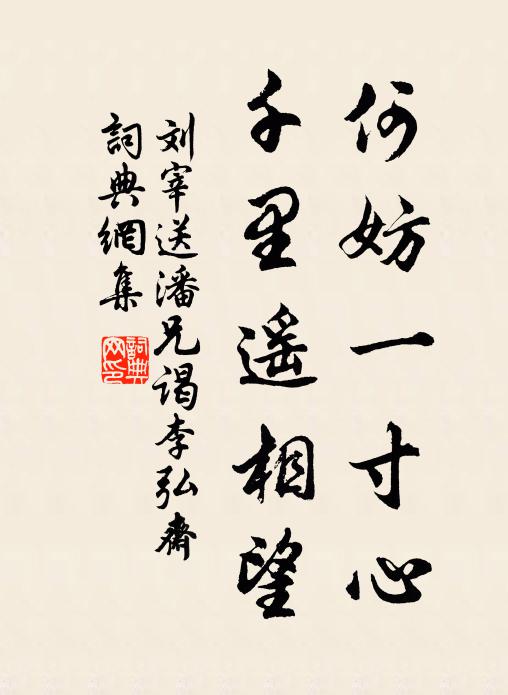 何妨一寸心
千里遥相望
刘宰送潘兄谒李弘斋
詞典網集
詞典網印